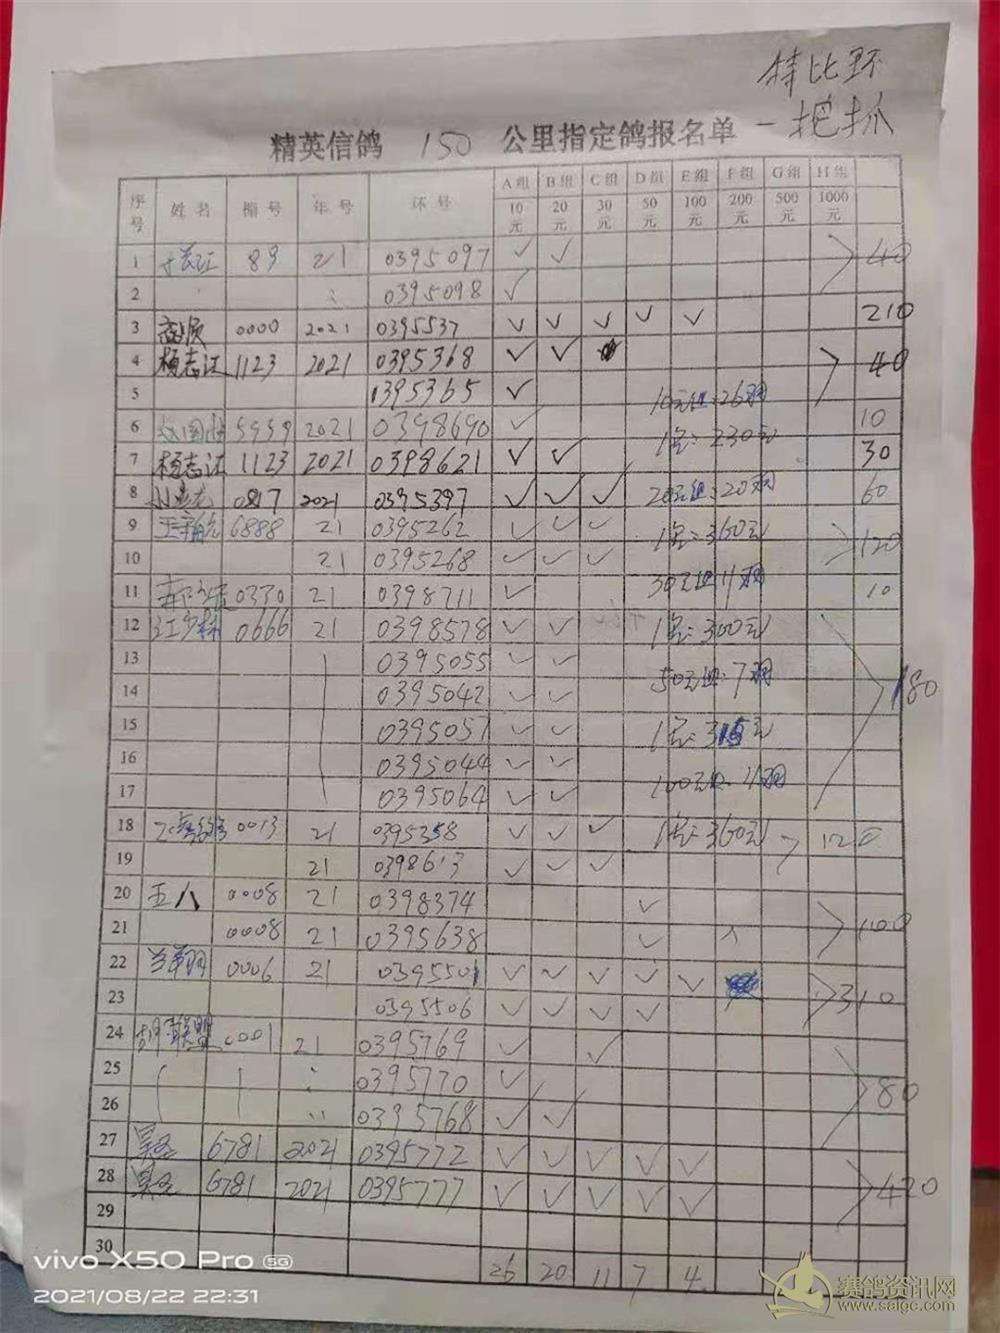 特比环
一把抓
精英信鸽 150 公里指定鸽报名单
序号 姓名 棚号 年号 环号 A组 10元 B组 20元 C组 30元 D组 50元 E组 100元 F组 200元 G组 500元 H组 1000元
1 89 21 0395097 ✓ ✓ 40
2 0395098 ✓
3 0000 2021 0395537 ✓ ✓ ✓ ✓ ✓ 210
4 杨志江 1123 2021 0395368 ✓ ✓ 40
5 0395365 ✓
10元组:26羽
6 5959 2021 0398690 ✓ 10
1名:230元
7 杨志江 1123 2021 0398621 ✓ ✓ 30
8 0817 2021 0395397 ✓ ✓ ✓ 60
20元组:20羽
9 6888 21 0395262 ✓ ✓ ✓ 120
1名:360元
10 21 0395268 ✓ ✓ ✓
11 0330 21 0398711 ✓ 10
30元组11羽
12 0666 21 0398578 ✓ ✓ 180
1名:300元
13 0395055 ✓ ✓
14 0395042 ✓ ✓
50元组:7羽
15 0395057 ✓ ✓
1名:315元
16 0395044 ✓ ✓
17 0395064 ✓ ✓
100元组:4羽
18 0013 21 0395358 ✓ ✓ ✓ 120
1名:360元
19 21 0398613 ✓ ✓ ✓
20 五人 0008 21 0398374 ✓ 100
21 0008 21 0395638 ✓
22 0006 21 0395501 ✓ ✓ ✓ ✓ ✓ 310
23 0395506 ✓ ✓ ✓ ✓
24 联盟 0001 21 0395769 ✓ ✓ 80
25 0395770 ✓
26 0395768 ✓ ✓
27 6781 2021 0395772 ✓ ✓ ✓ ✓ ✓ 420
28 6781 2021 0395777 ✓ ✓ ✓ ✓ ✓
29
30
26 20 11 7 4
vivo X50 Pro 5G
2021/08/22 22:31
赛鸽资讯网
www.saigc.com